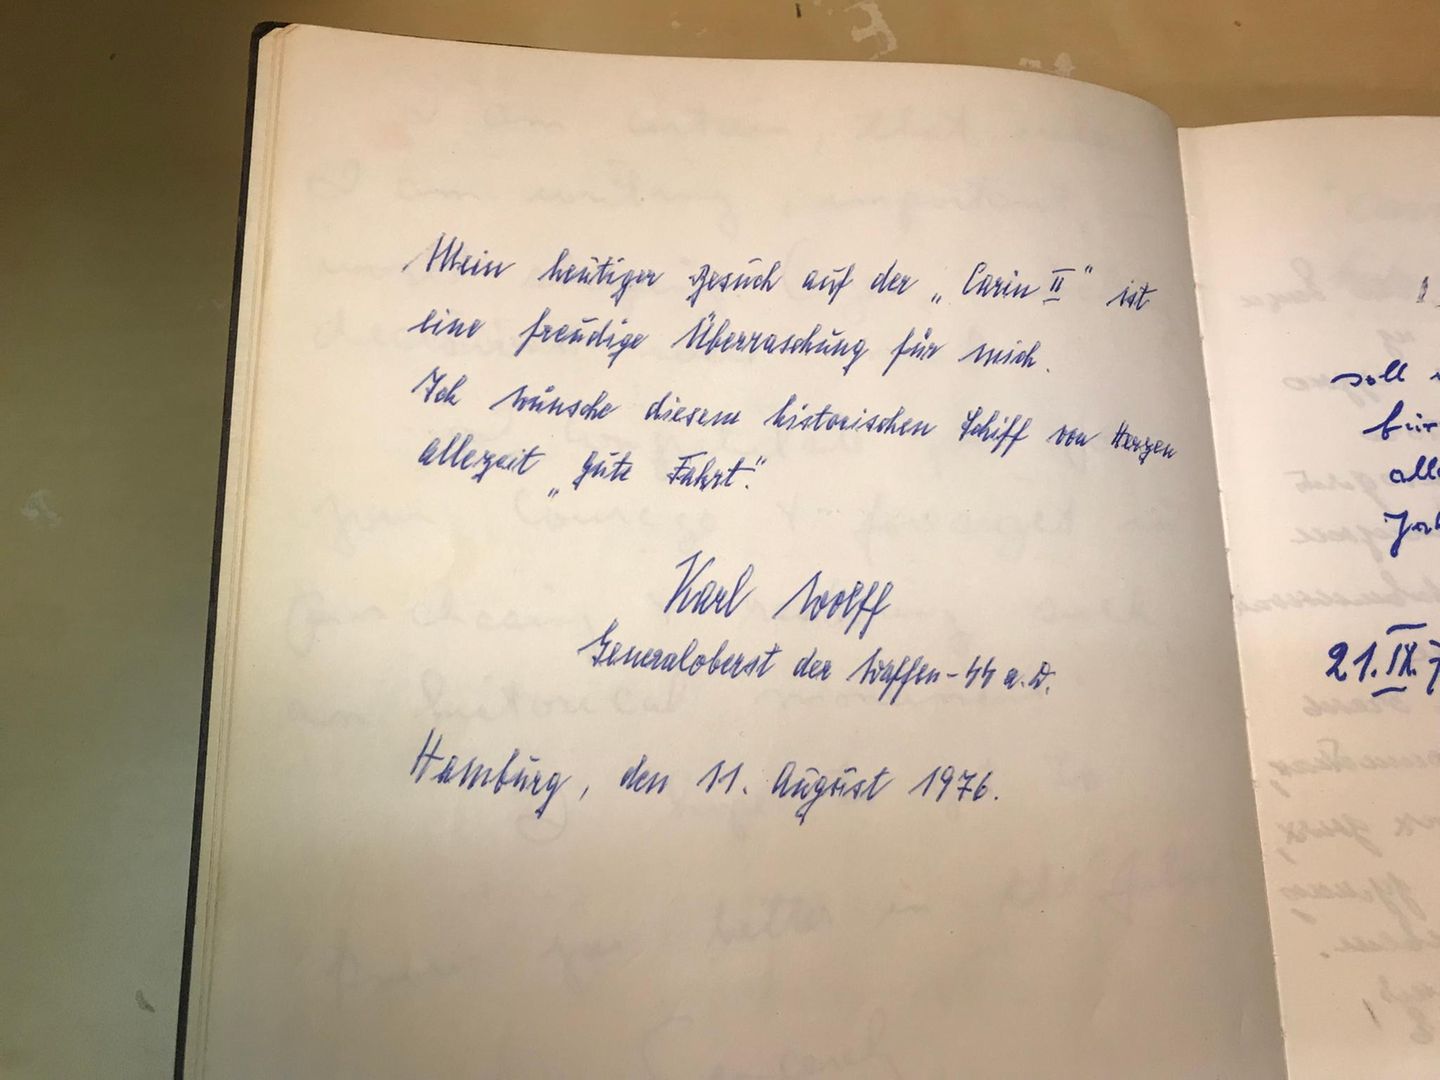 Mein heutiger Besuch auf der „Carin II“ ist
eine freudige Überraschung für mich.
Ich wünsche diesem historischen Schiff von Herzen
allezeit „gute Fahrt“.
Karl Wolff
Generaloberst der Waffen-SS a.D.
Hamburg, den 11. August 1976.
soll
für
Jah
21.IX.7